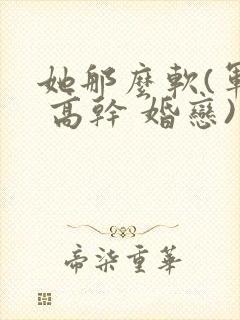 她那麼軟(軍
高幹 婚戀)
帝柒重華